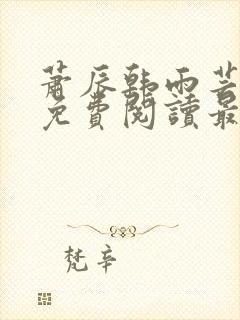 蕭辰韓雨芸
免費閱讀最
梵辛